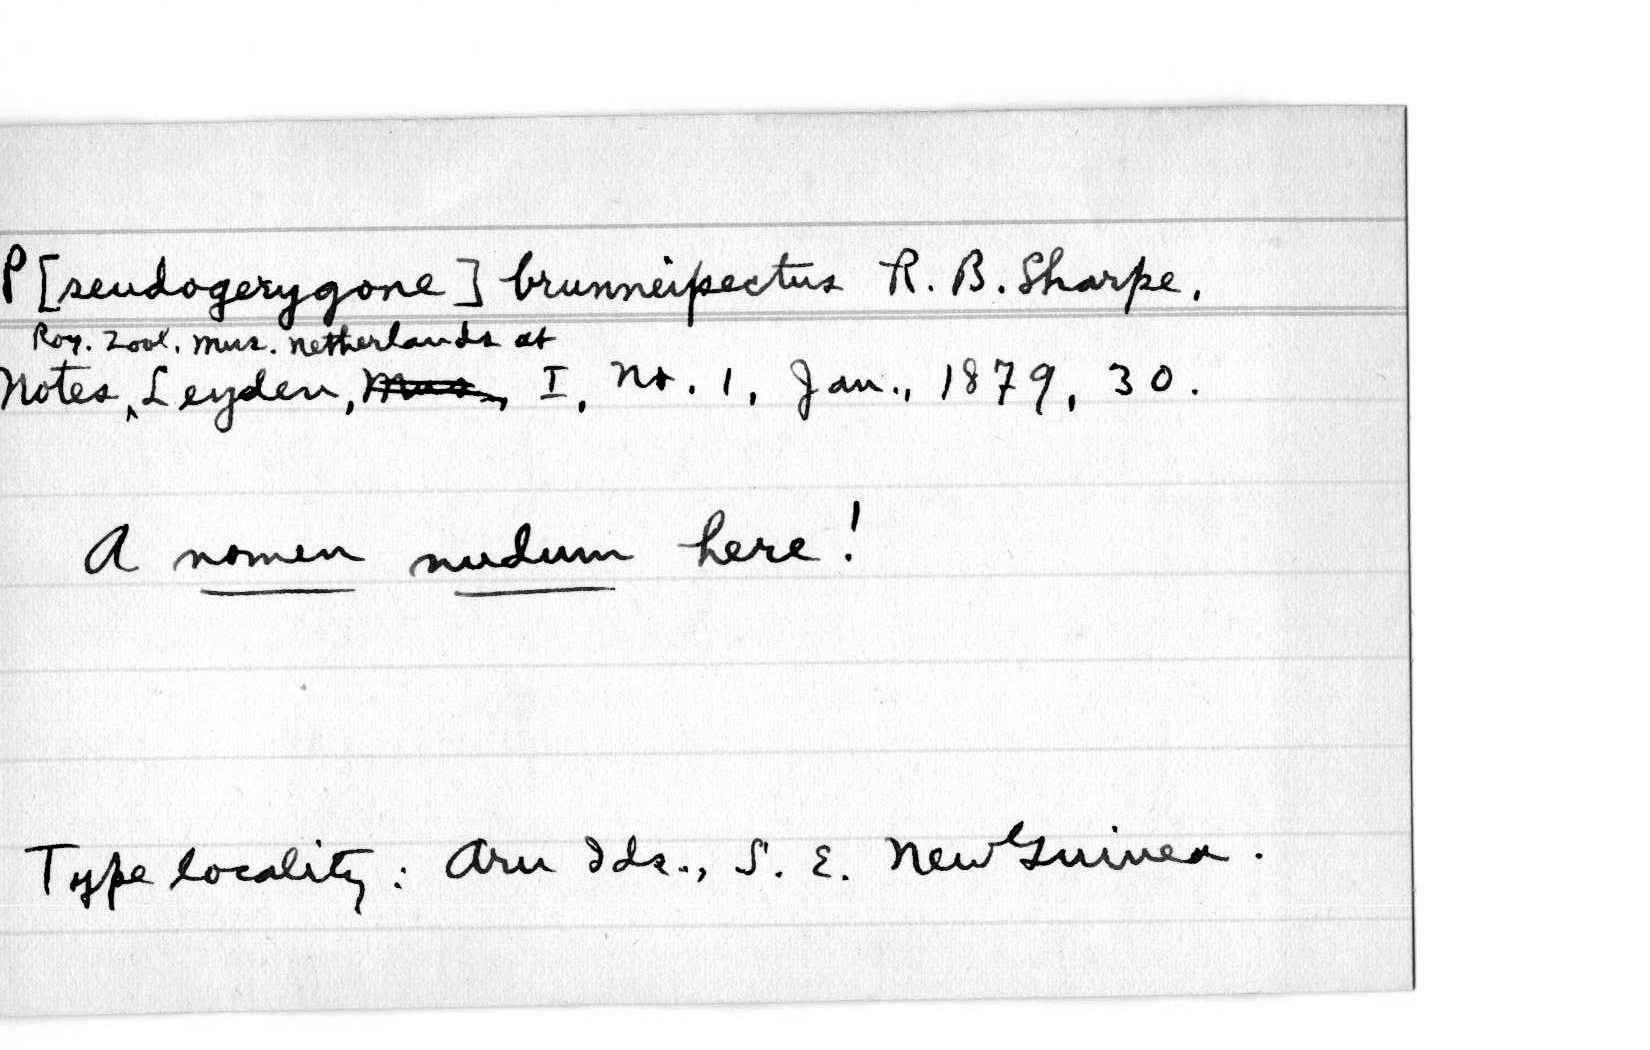 P[seudogerygone] brunneipectus R. B. Sharpe,
Roy. Zool. Mus. Netherlands at
Notes ‸ Leyden, Mus., I, No. 1, Jan., 1879, 30.
A nomen nudum here!
Type locality: Aru Ids., S. E. New Guinea.